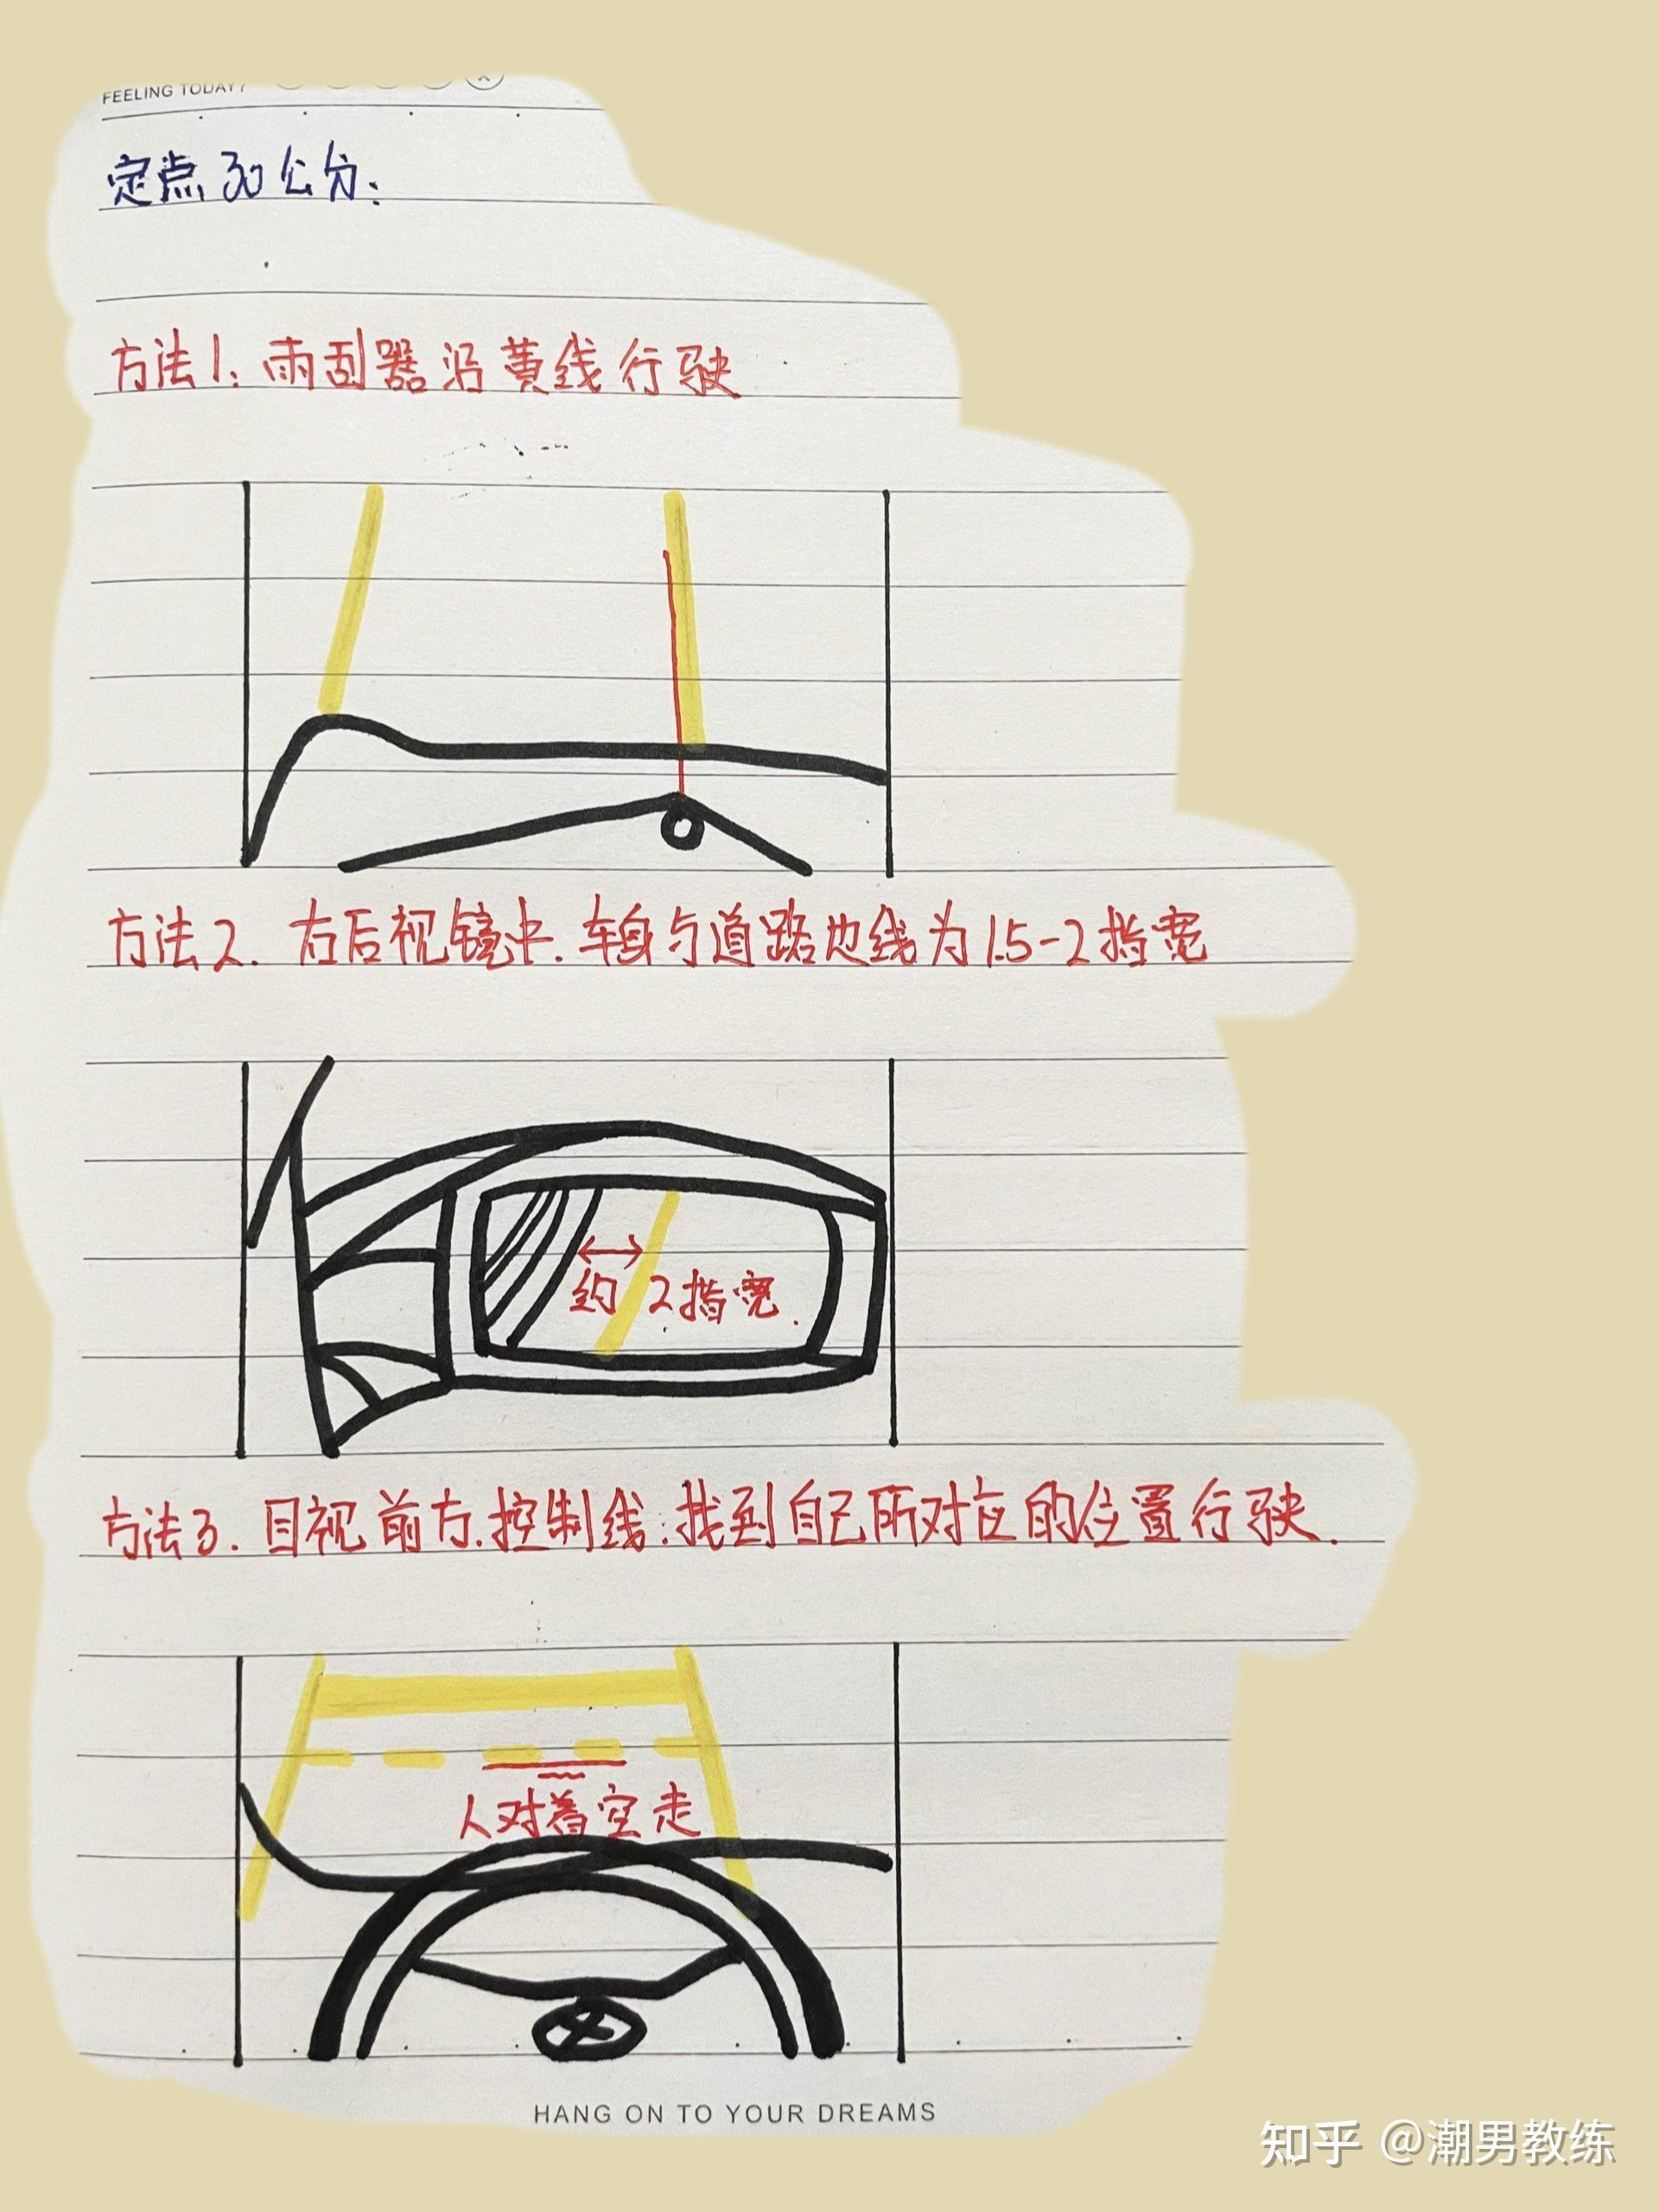 FEELING TODAY?
定点30公分:
方法1:雨刮器沿黄线行驶
方法2. 右后视镜中.车身与道路边线为1.5-2指宽
约2指宽.
方法3.目视前方.控制线.找到自己所对应的位置行驶.
人对着空走
HANG ON TO YOUR DREAMS
知乎 @潮男教练